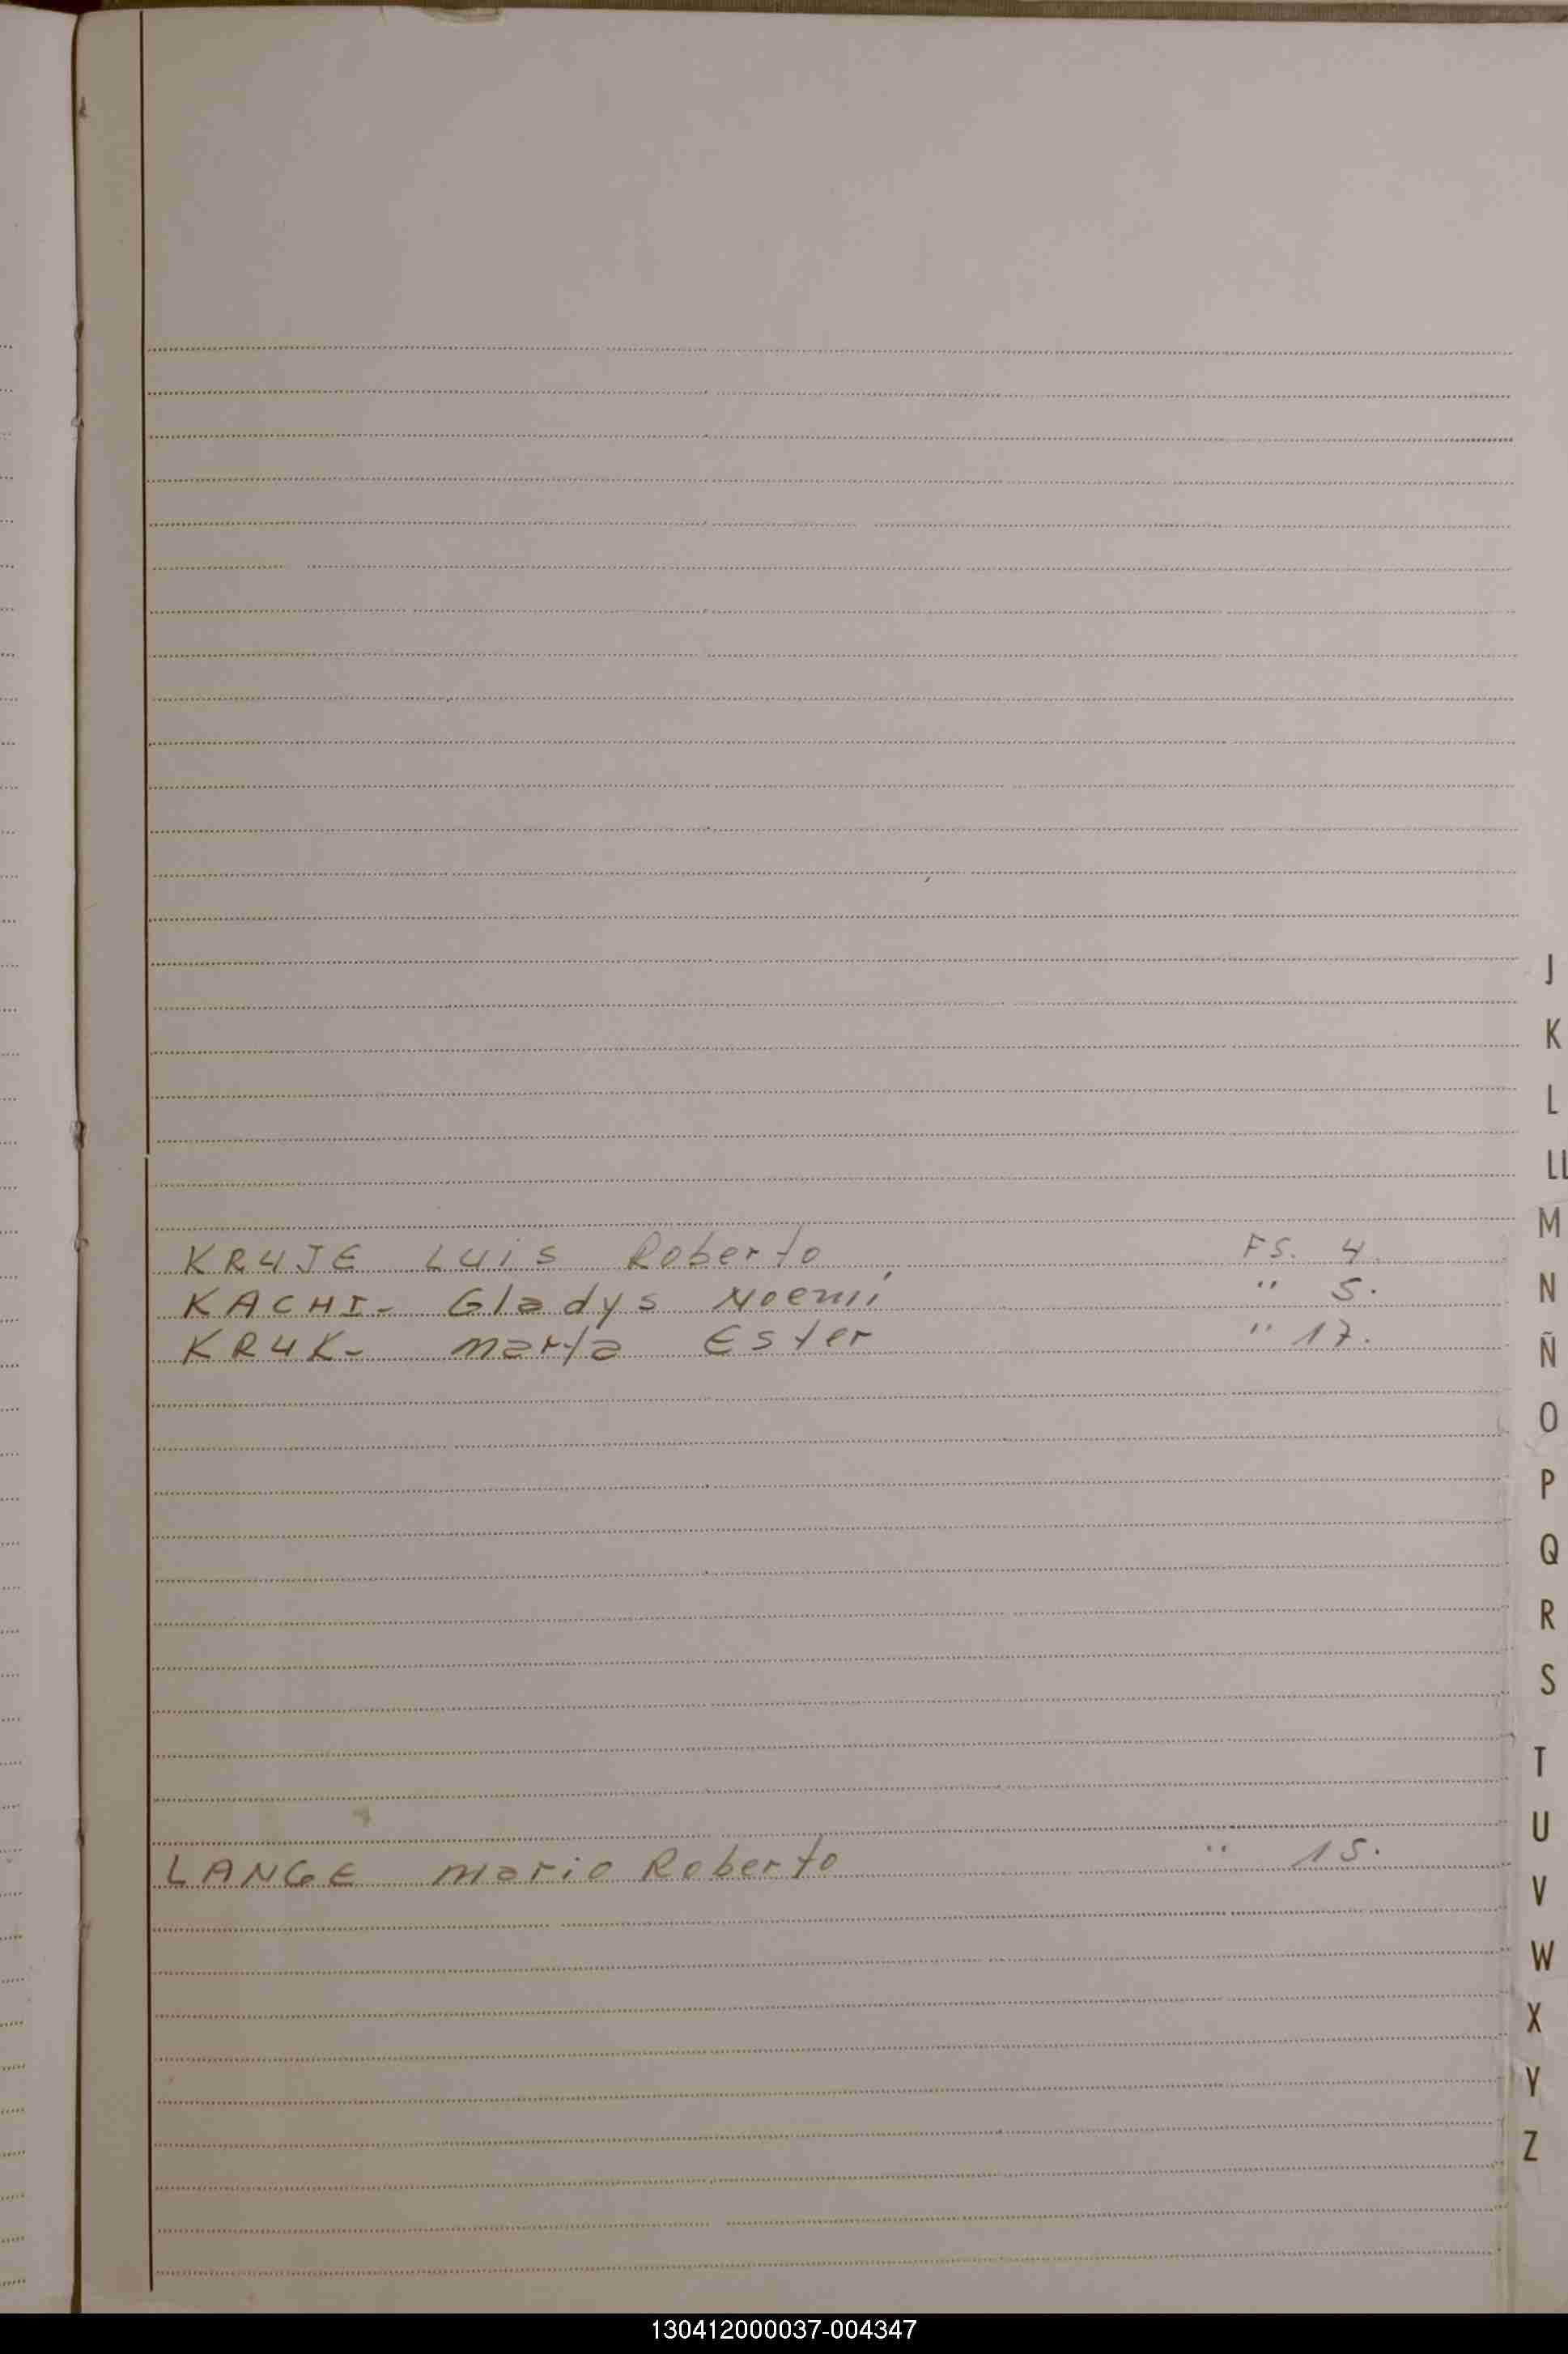 J
K
L
LL
M
KRUJE Luis Roberto FS. 4.
N
KACHI- Gladys Noemí " 5.
KRUK- Marta Ester " 17.
Ñ
O
P
Q
R
S
T
U
LANGE Mario Roberto " 15.
V
W
X
Y
Z
130412000037-004347